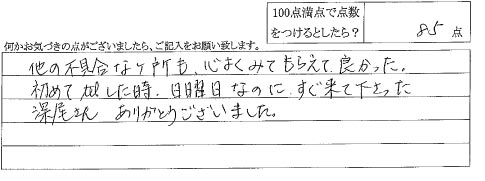 100点満点で点数
をつけるとしたら？ 85 点
何かお気づきの点がございましたら、ご記入をお願い致します。
他の不具合なヶ所も、心よくみてもらえて良かった。
初めて TELした時、日曜日なのに、すぐ来て下さった
深尾さん ありがとうございました。